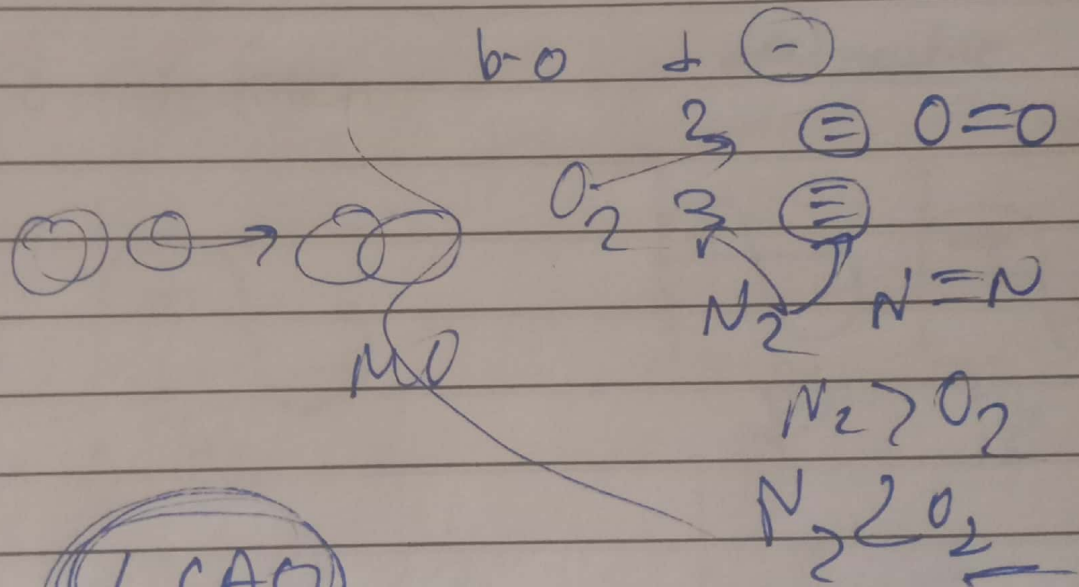 b-o 1 -
2 = O=O
O2 3 ≡
N2 N≡N
MO
N2 > O2
N2 < O2
LCAO